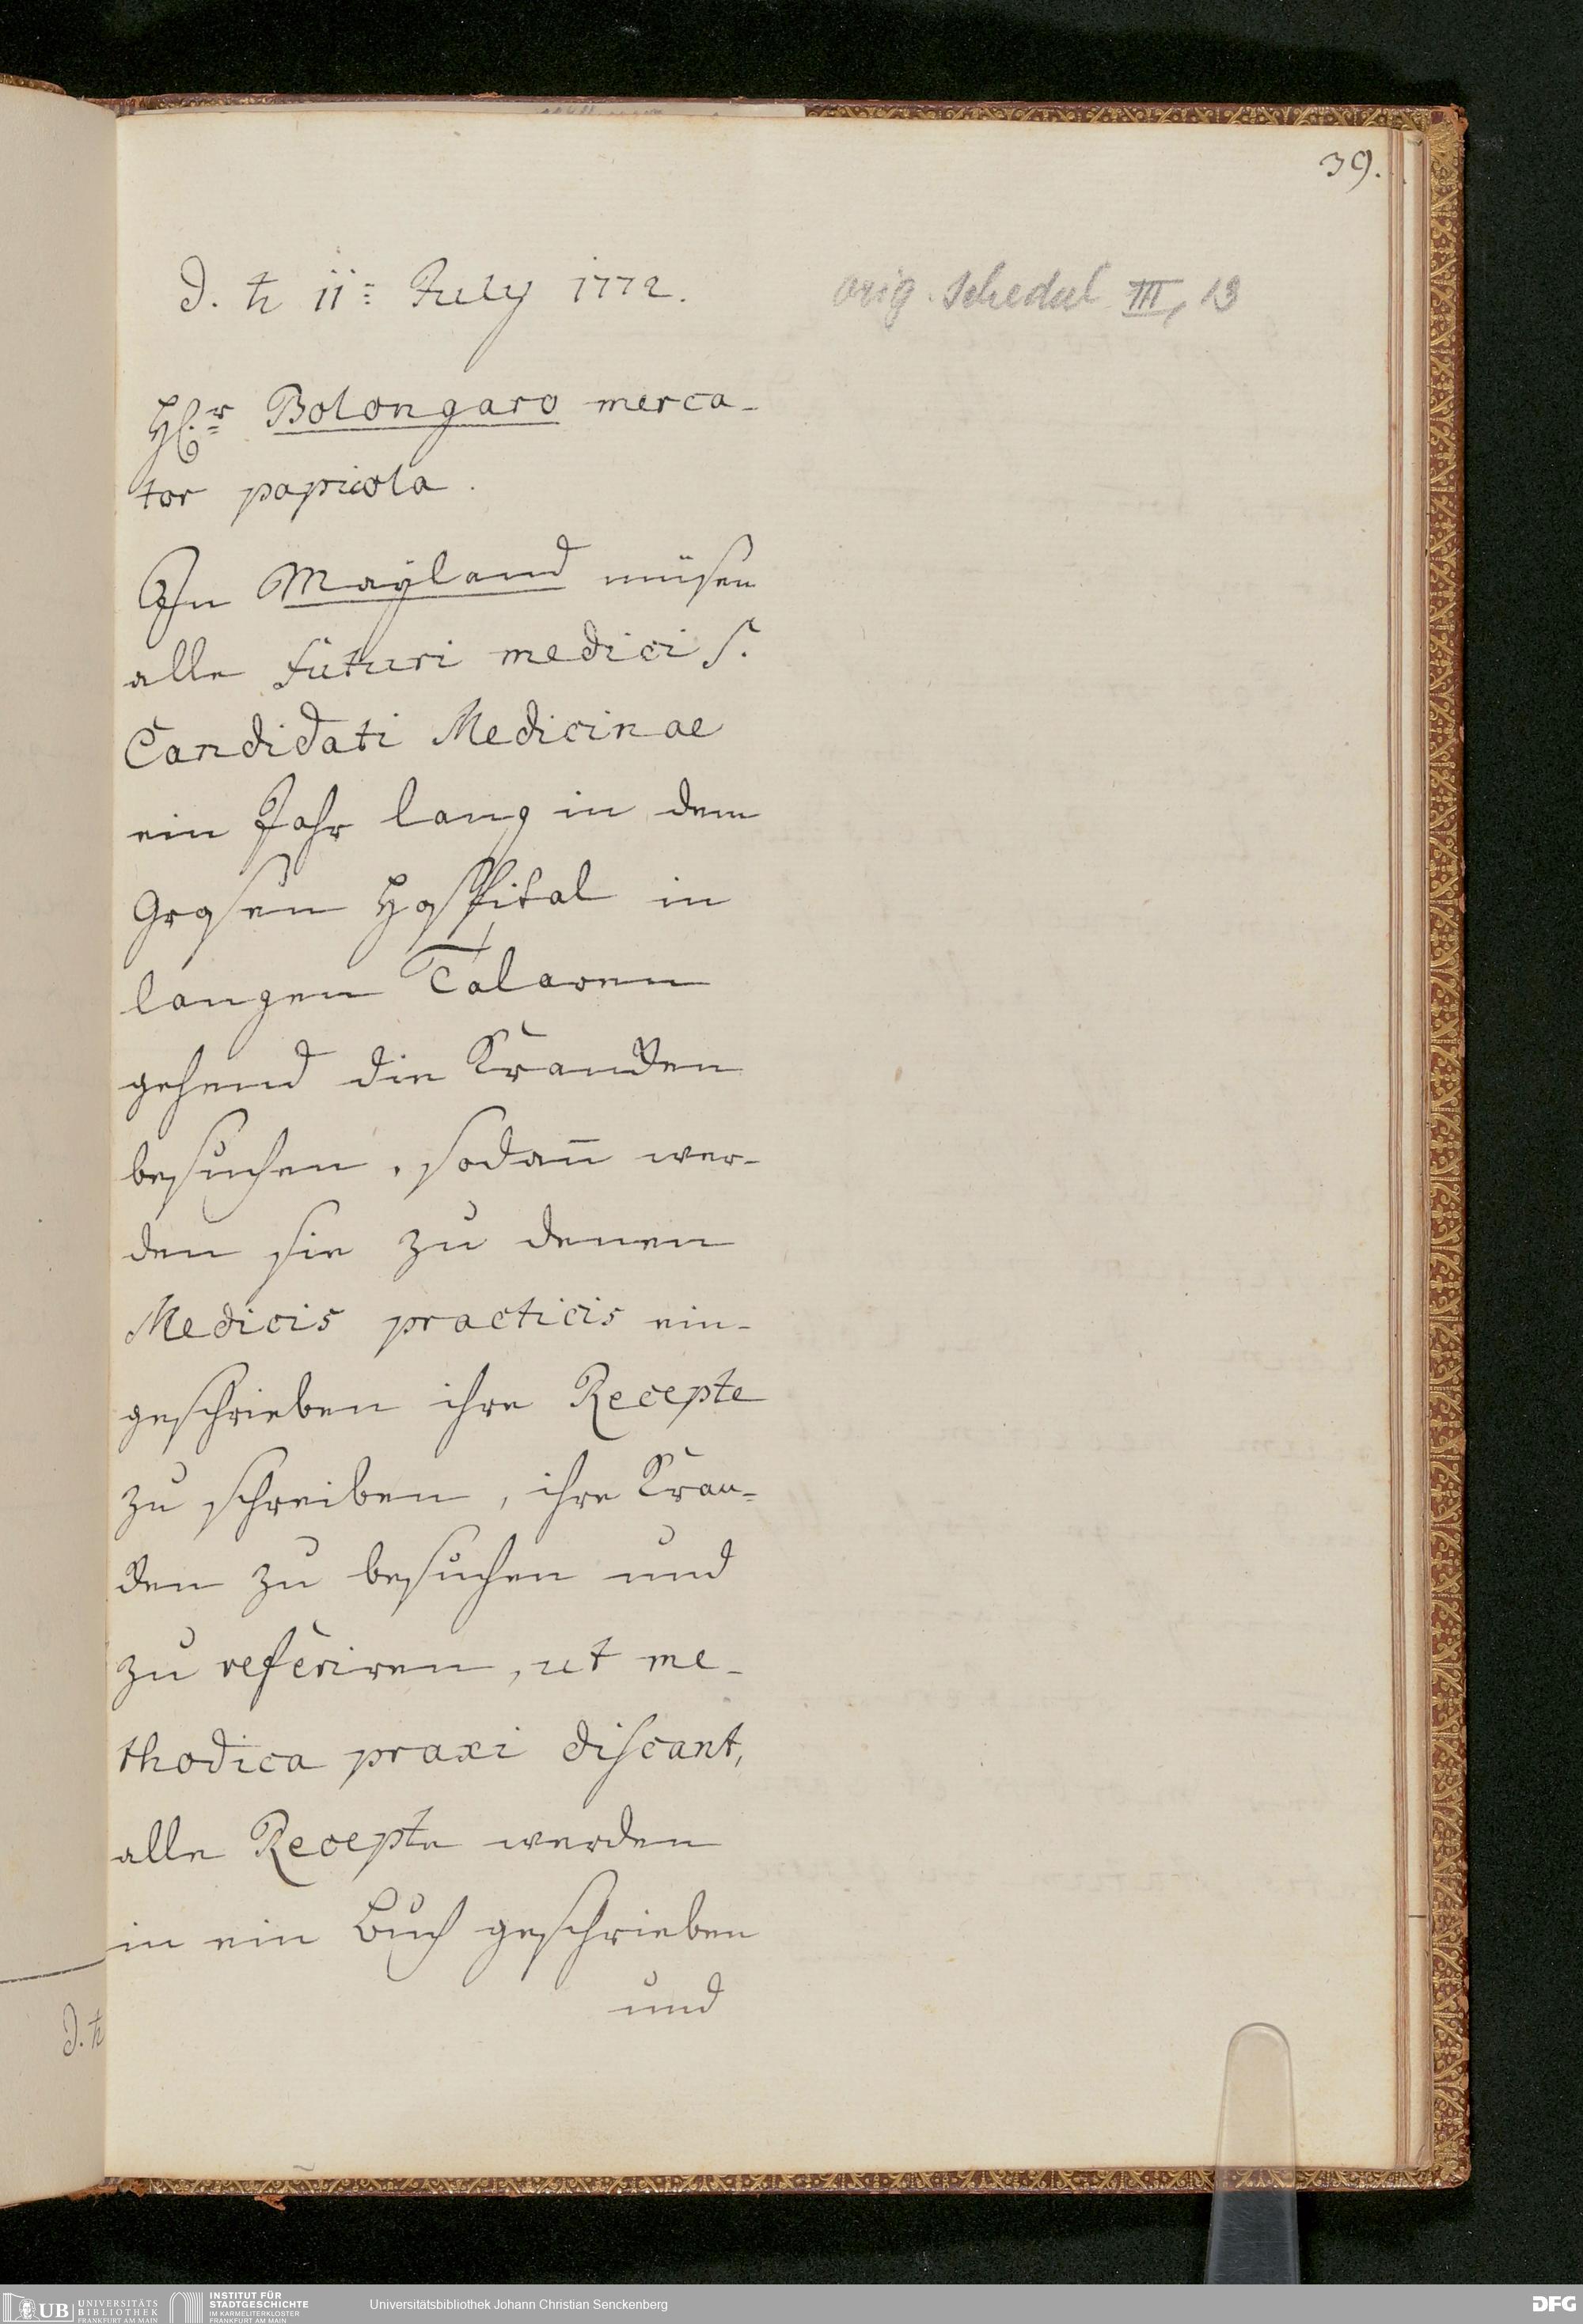 39.
D. ♄ 11= July 1772.
orig. Schedul III, 13
H.r Bolongaro merca-
tor papicola.
In Maÿland müsen
alle futuri medici s.
Candidati Medicinae
ein Jahr lang in dem
Grosen Hospital in
langen Talaren
gehend die Krancken
besuchen, sodan̄ wer-
den sie zu denen
Medicis practicis ein-
geschrieben ihre Recepte
zu schreiben, ihre Kran-
cken zu besuchen und
zu referiren, ut me-
thodica praxi discant,
alle Recepte werden
in ein Buch geschrieben
und
D. ♄
UB UNIVERSITÄTS
BIBLIOTHEK
FRANKFURT AM MAIN
INSTITUT FÜR
STADTGESCHICHTE
IM KARMELITERKLOSTER
FRANKFURT AM MAIN
Universitätsbibliothek Johann Christian Senckenberg
DFG